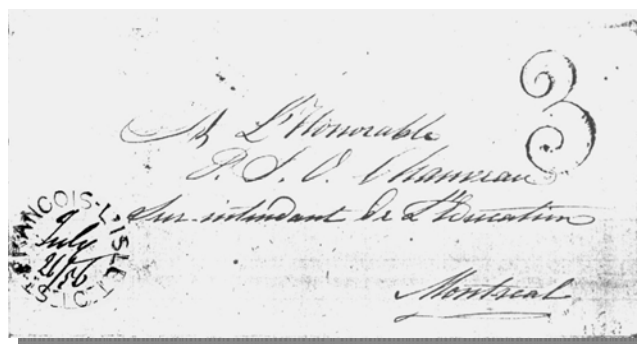 3
A L'Honorable
P. J. O. Chauveau
Sur-intendant de L'Education
Montreal
FRANCOIS-L'ISLET
July
21/56